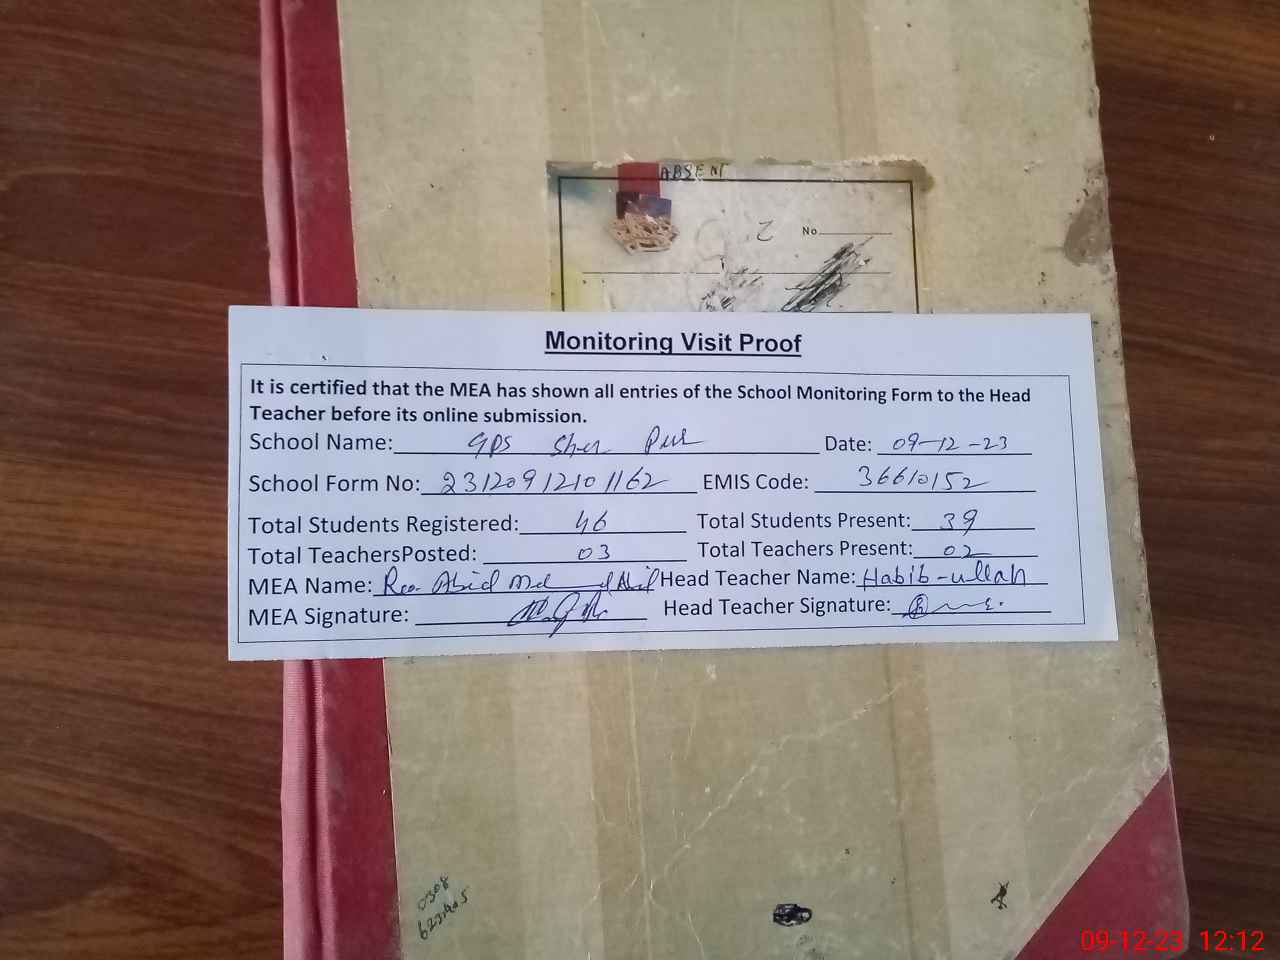 ABSENT
No
Monitoring Visit Proof
It is certified that the MEA has shown all entries of the School Monitoring Form to the Head
Teacher before its online submission.
School Name: GPS Sher Pur Date: 09-12-23
School Form No: 23120912101162 EMIS Code: 36610152
Total Students Registered: 46 Total Students Present: 39
Total TeachersPosted: 03 Total Teachers Present: 02
MEA Name: Rao Abid Head Teacher Name: Habib-ullah
MEA Signature: Head Teacher Signature:
0308
09-12-23 12:12